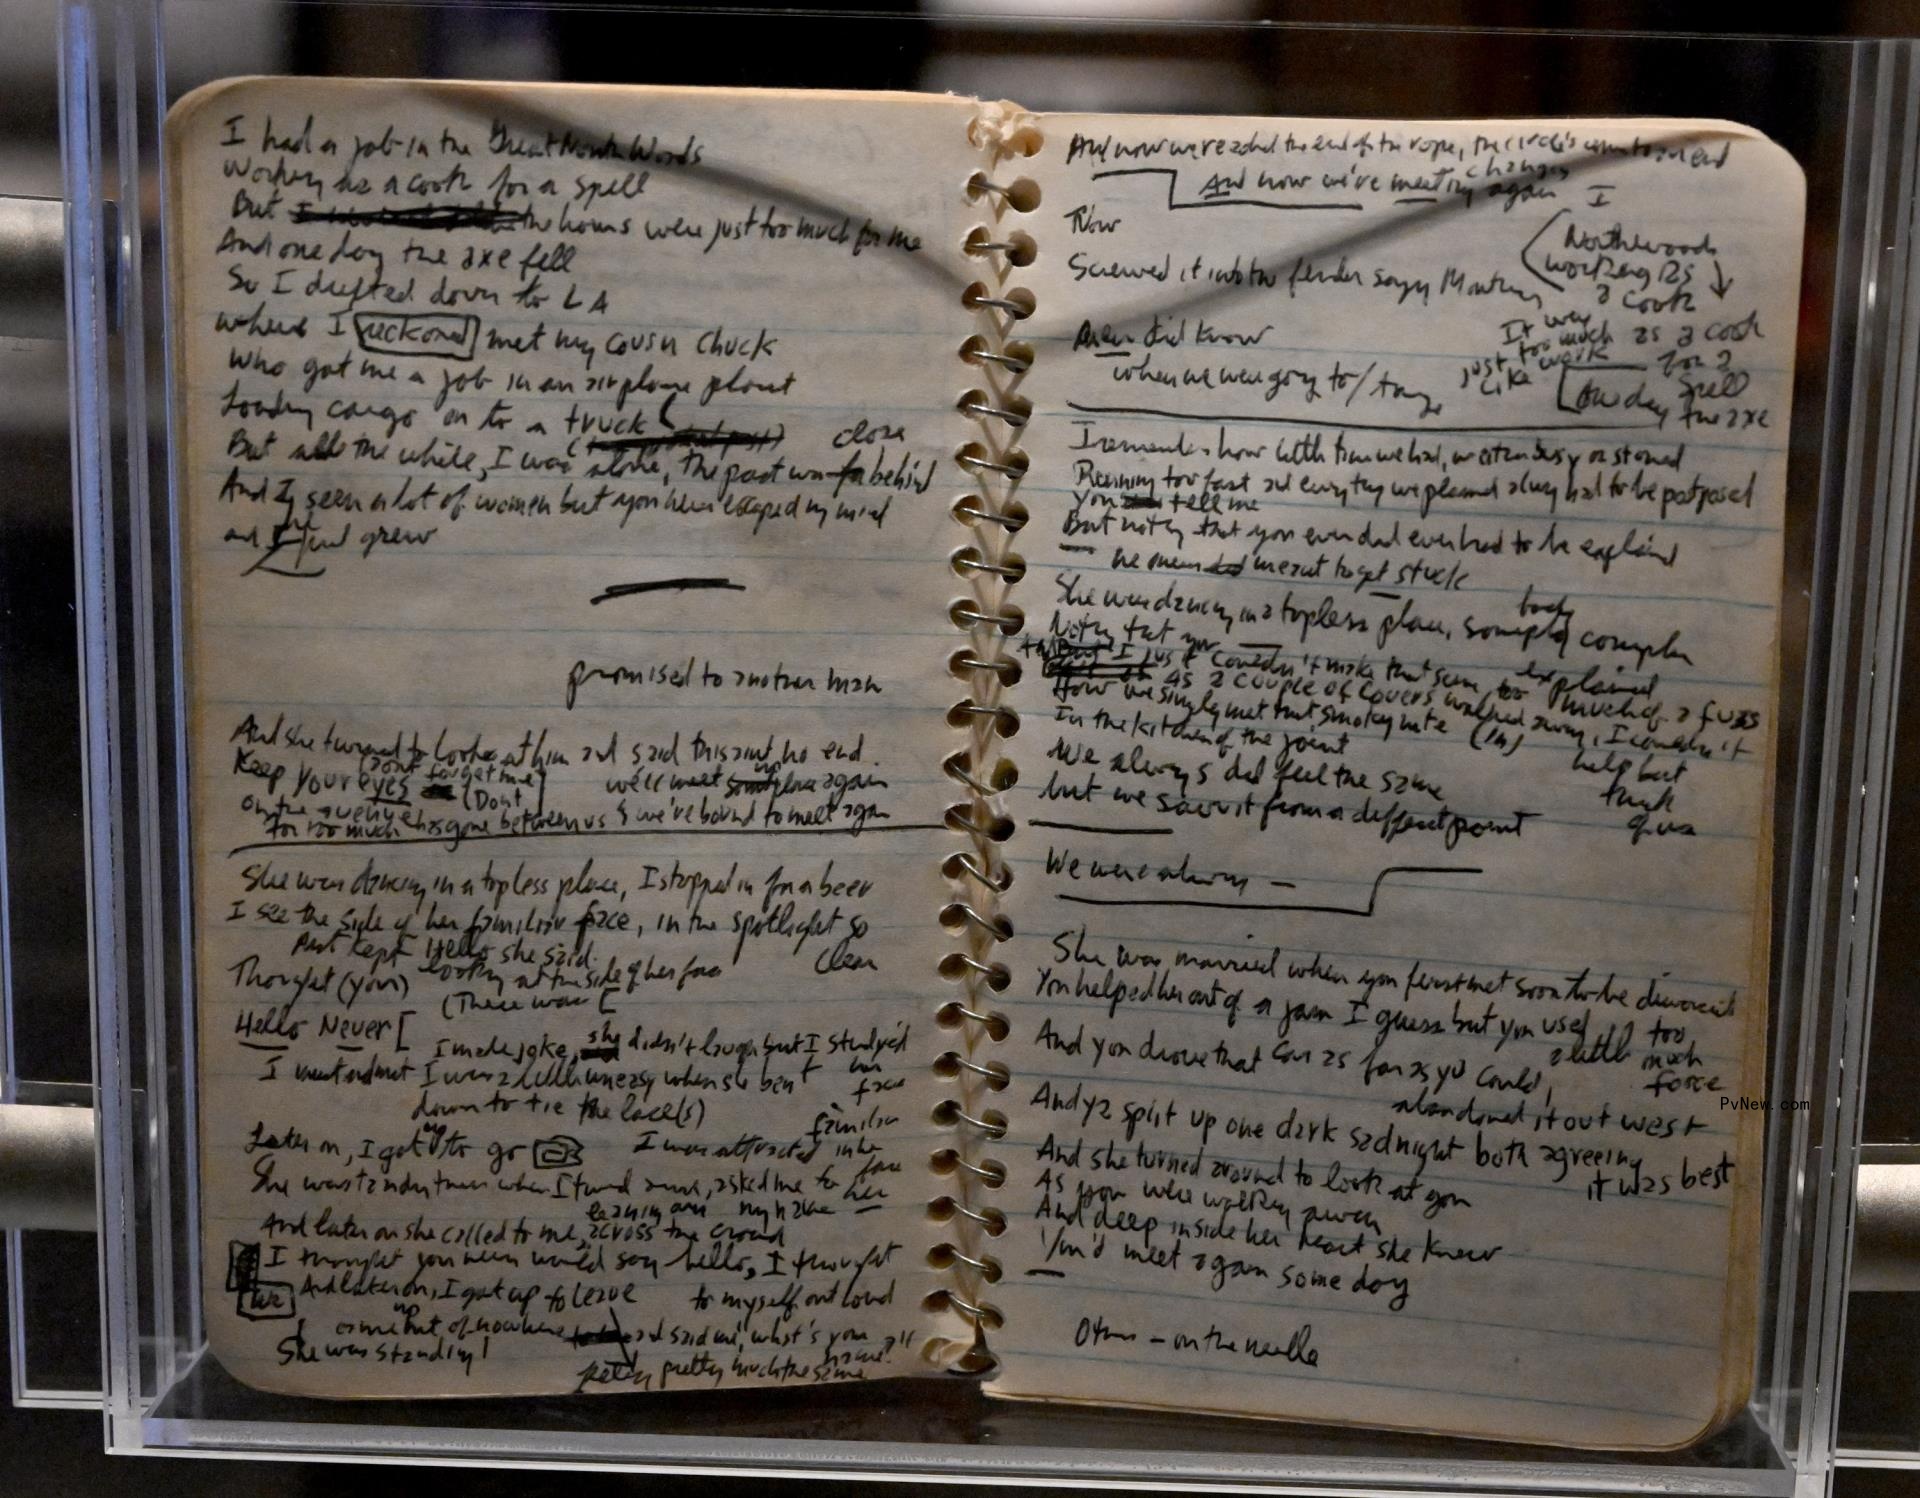 I had a job in the Great North Woods
Working as a cook for a spell
But the hours were just too much for me
And one day the axe fell
So I drifted down to LA
where I reckoned met my cousin Chuck
Who got me a job in an airplane plant
Loading cargo on to a truck
close
But all the while, I was alone, the past was behind
And I seen a lot of women but you never escaped my mind
and I just grew
promised to another man
And she turned to look at him and said this aint no end
Keep your eyes (Dont forget me)
(Dont
we'll meet again
on the avenue
for too much has gone between us & we're bound to meet again
She was dancing in a topless place, I stopped in for a beer
I see the side of her familiar face, in the spotlight so
clear
But kept Hello she said.
Thought (you) looking at the side of her face
(There was [
Hello Never [
I made joke, she didn't laugh but I studyed
her face
I must admit I was a little uneasy when she bent
down to tie the lace(s)
familiar
Later on, I got up to go
I was attracted
face
She was standing there when I turned asked me
her
my name
And later on she called to me, across the crowd
I thought you never would say hello, I thought
to myself out loud
And later on, I got up to leave
up
came out of nowhere and said me, what's your
name?"
She was standing
pretty much the same
And now we reached the end of the rope, the circle's come to an end
changes
And now we're meeting again
I
Now
(Northwoods
working as
a cook
Screwed it into the fender
It was
just too much
like work
as a cook
for a
spell
did know
when we were going to /
One day
the axe
I remember how little time we had, we either busy or stoned
Running too fast and everything we planned always had to be postponed
you tell me
But nothing that you ever did ever had to be explained
we never meant to get stuck
She was dancing in a topless place,
body
Nothing that you
I just couldn't make that scene, too
explained
much of a fuss
as a couple of lovers walked away, I couldn't
help but
think
of us
How we simply met that smoky nite (in)
In the kitchen of the joint
We always did feel the same
but we saw it from a different point
We were always —
She was married when you first met soon to be divorced
You helped her out of a jam I guess but you used
a little too
much
force
And you drove that car as far as you could,
abandoned it out west
And ya split up one dark sad night both agreeing
it was best
And she turned around to look at you
As you were walking away
And deep inside her heart she knew
You'd meet again some day
on the needle
PvNew.com